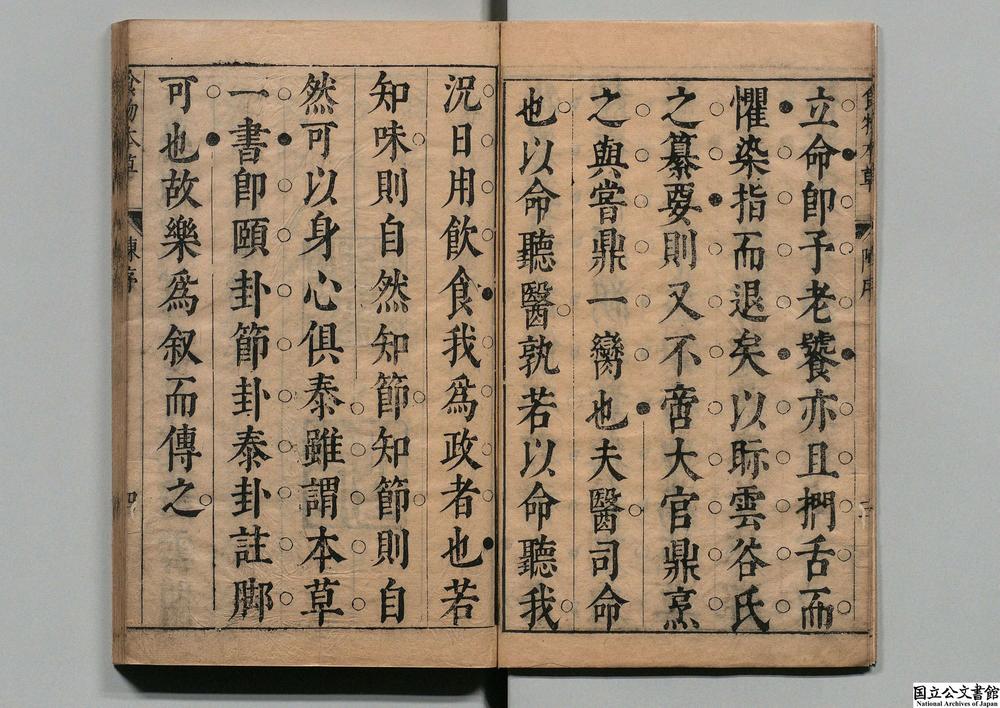 立命即予老饕亦且捫舌而
懼染指而退矣以眎雲谷氏
之纂要則又不啻大官鼎烹
之與嘗鼎一臠也夫醫司命
也以命聽醫孰若以命聽我
況日用飲食我為政者也若
知味則自然知節知節則自
然可以身心俱泰雖謂本草
一書卽頤卦節卦泰卦註脚
可也故樂爲叙而傳之
食物本草
陳序
国立公文書館
National Archives of Japan